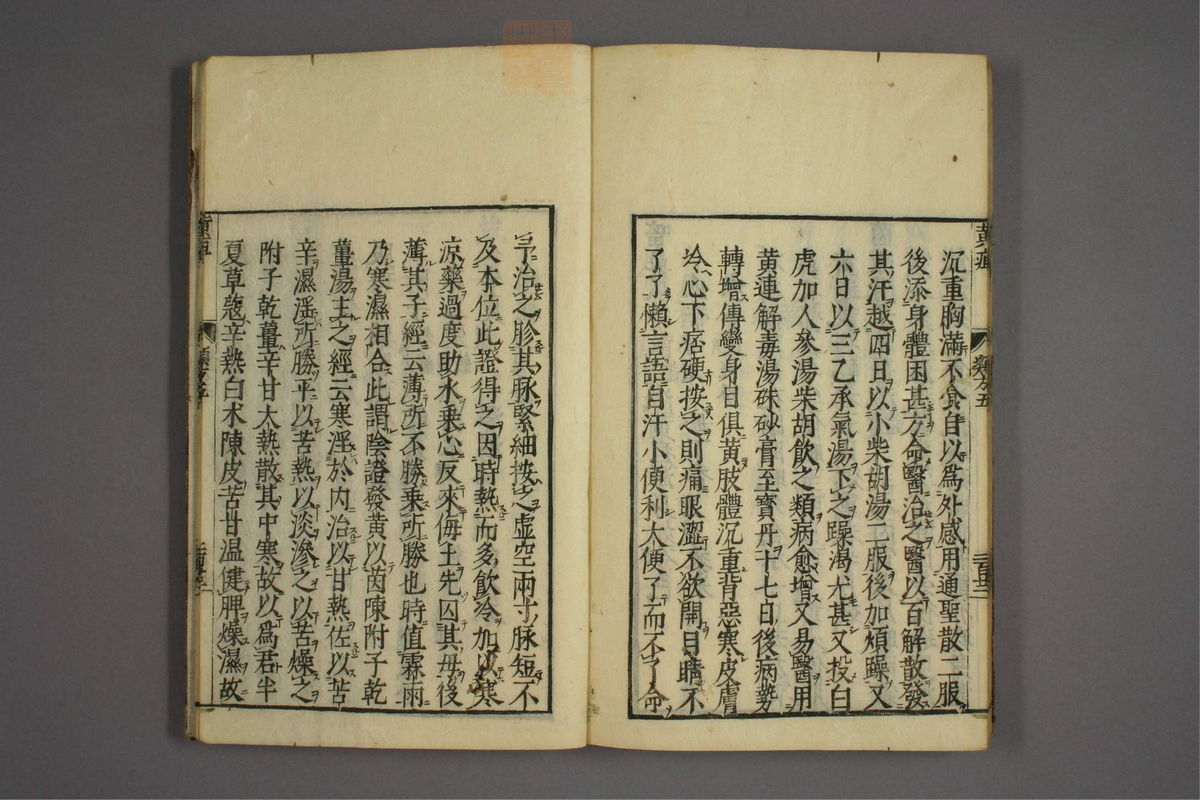 沉重胸滿不食自以爲外感用通聖散二服
後添身體困甚方命醫治之醫以百解散發
其汗越四日以小柴胡湯二服後加煩躁又
六日以三乙承氣湯下之躁渴尤甚又投白
虎加人參湯柴胡飮之類病愈增又易醫用
黃連解毒湯硃砂膏至寶丹十七日後病勢
轉增傳變身目俱黃肢體沉重背惡寒皮膚
冷心下痞硬按之則痛眼澀不欲開目睛不
了了懶言語自汗小便利大便了而不了命
予治之胗其脉緊細按之虛空兩寸脉短不
及本位此證得之因時熱而多飮冷加以寒
涼藥過度助水乘心反來侮土先囚其母後
薄其子經云薄所不勝乘所勝也時值霖雨
乃寒濕相合此謂陰證發黃以茵陳附子乾
薑湯主之經云寒淫於內治以甘熱佐以苦
辛濕淫所勝平以苦熱以淡滲之以苦燥之
附子乾薑辛甘大熱散其中寒故以爲君半
夏草蔲辛熱白朮陳皮苦甘温健脾燥濕故